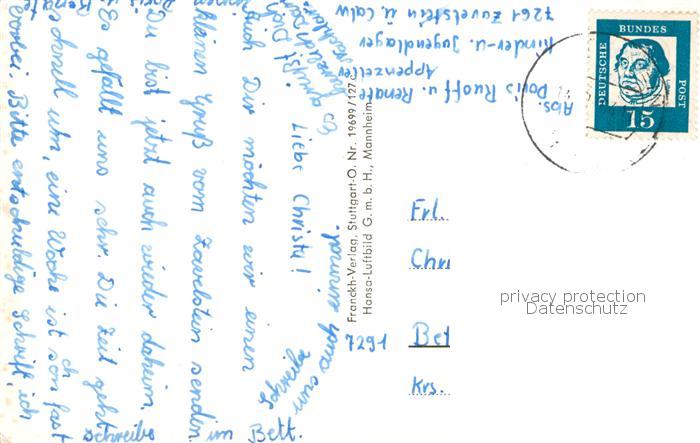 Liebe Christa!
Auch Dir möchten wir einen
kleinen Gruß vom Zavelstein senden.
Du bist jetzt auch wieder daheim.
Es gefällt uns sehr. Die Zeit geht
schnell um, eine Woche ist schon fast
vorbei. Bitte entschuldige Schrift, ich
schreibe im Bett.
Es grüßt Dich
herzlich
Schreibe
uns
einmal
Doris u.
Renate
Franckh-Verlag, Stuttgart-O, Nr. 19699/127 c
Hansa-Luftbild G. m. b. H., Mannheim
Abs.
Doris Ruoff u. Renate
Appenzeller
Kinder-u. Jugendlager
7261 Zavelstein ü. Calw
DEUTSCHE BUNDES POST
15
Frl.
Chri
7291 Bet
Krs.
privacy protection
Datenschutz